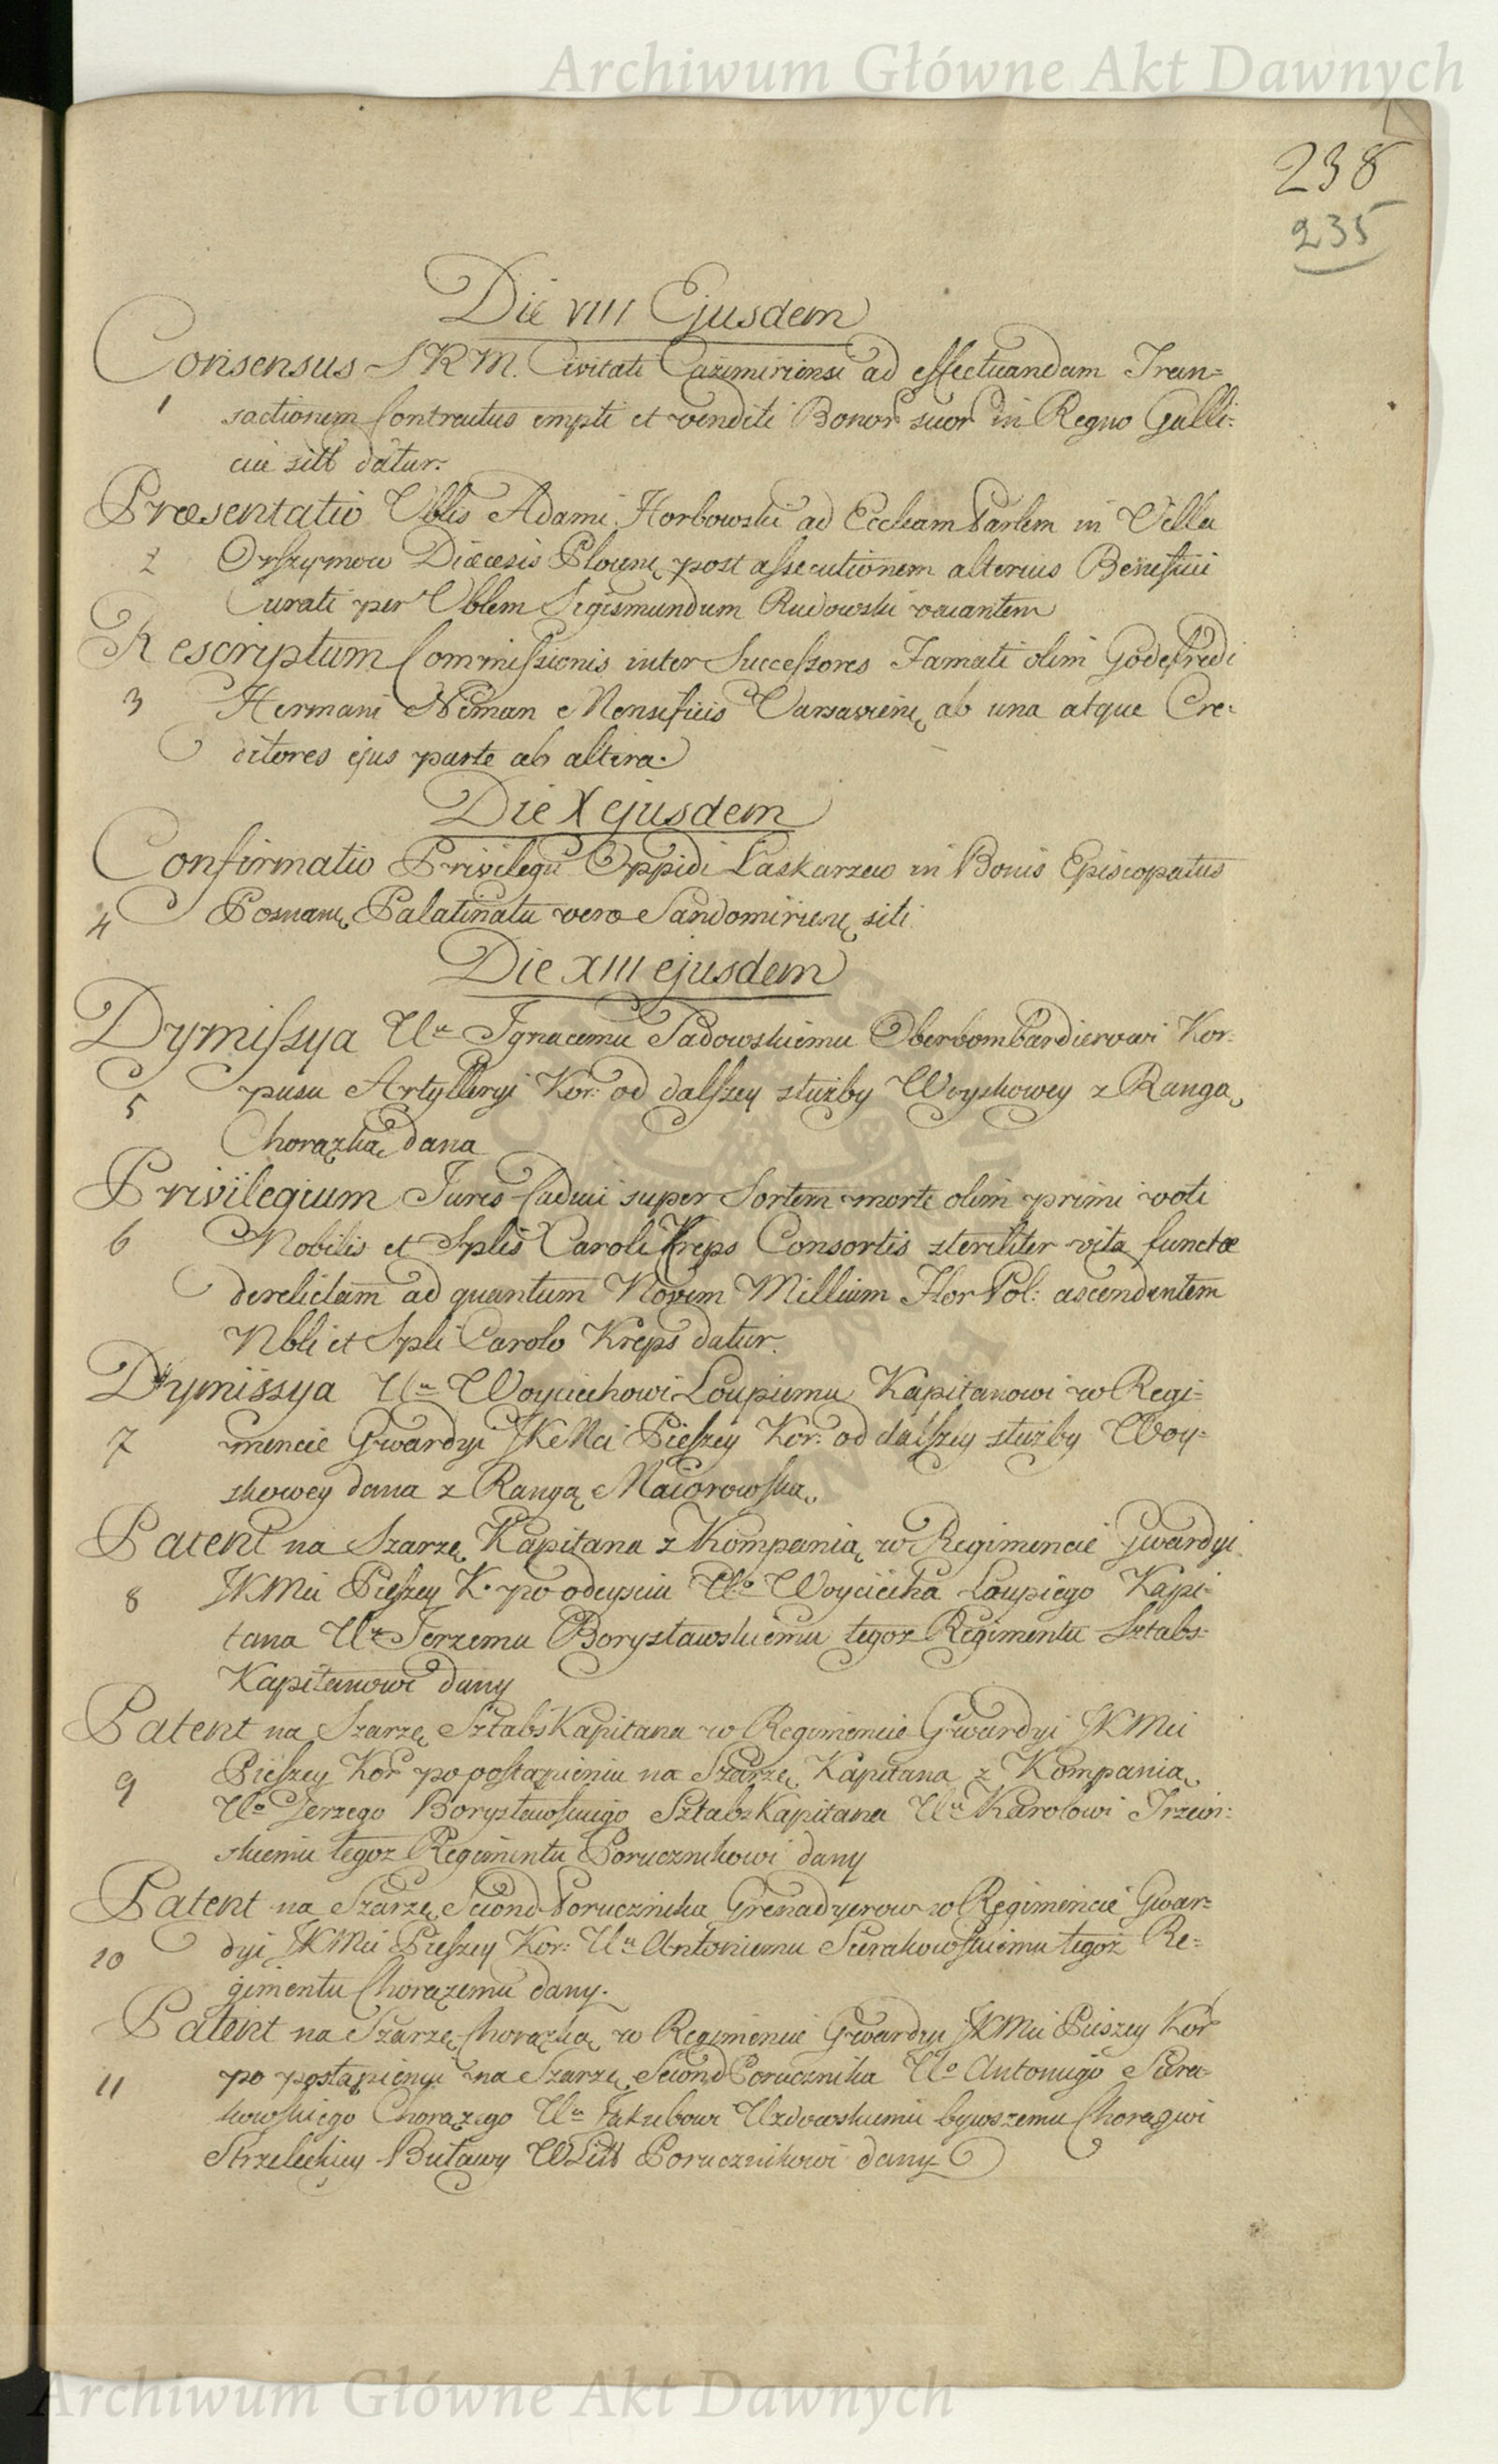 Archiwum Główne Akt Dawnych
238
235
Die VIII Ejusdem
Consensus SRM. Civitati Cazimiriensi ad effectuandam Tran=
1 sactionem Contractus empti et venditi Bonor suor in Regno Galli=
ciæ sitt datur.
Præsentatio Vblis Adami Horbowski ad Eccleam Parlem in Villa
2 Orszymow Diæcesis Plocen, post assecutionem alterius Beneficii
Curati per Vblem Sigismundum Rudowski vacantem
Rescriptum Commissionis inter Successores Famati olim Godefredi
3 Hermani Neman Mensificis Varsavien, ab una atque Cre=
ditores ejus parte ab altera.
Die X ejusdem
Confirmatio Privilegii Oppidi Łaskarzew in Bonis Episcopatus
4 Posnan, Palatinatu vero Sandomirien, siti.
Die XIII ejusdem
Dymissya Ur Ignacemu Sadowskiemu Oberbombardierowi Kor=
5 pusu Artylleryi Kor: od dalszey służby Woyskowey z Rangą
Chorążką dana
Privilegium Juris Caduci super Sortem morte olim primi voti
6 Nobilis et Splis Caroli Kreps Consortis steriliter vita functæ
derelictam ad quantum Novem Millium Flor Pol: ascendentem
Nbli et Spli Carolo Kreps datur.
Dymissya Ur Woyciechowi Loupiemu Kapitanowi w Regi=
7 mencie Gwardyi JKeMci Pieszey Kor: od dalszey służby Woy=
skowey dana z Rangą Maiorowską
Patent na Szarzę Kapitana z Kompanią w Regimencie Gwardyi
8 JKMci Pieszey K. po odeysciu Uo Woyciecha Loupiego Kapi=
tana Ur Jerzemu Borysławskiemu tegoż Regimentu Sztabs=
Kapitanowi dany
Patent na Szarzę SztabsKapitana w Regimencie Gwardyi JKMci
9 Pieszey Kor po postąpieniu na Szarzę Kapitana z Kompanią
Uo Jerzego Borysławskiego SztabsKapitana Ur Karolowi
skiemu tegoż Regimentu Porucznikowi dany
Patent na Szarzę Second Porucznika Grenadyerow w Regimencie Gwar=
10 dyi JKMci Pieszey Kor: Ur Antoniemu Sierakowskiemu tegoż Re=
gimentu Chorążemu dany.
Patent na Szarzę Chorążką w Regimencie Gwardyi JKMci Pieszey Kor
11 po postąpieniu na Szarzę Second Porucznika Uo Antoniego Siera=
kowskiego Chorążego Ur Jakubowi Uzdowskiemu bywszemu Chorągwi
Strzeleckiey Buławy WLitt Porucznikowi dany
Archiwum Główne Akt Dawnych